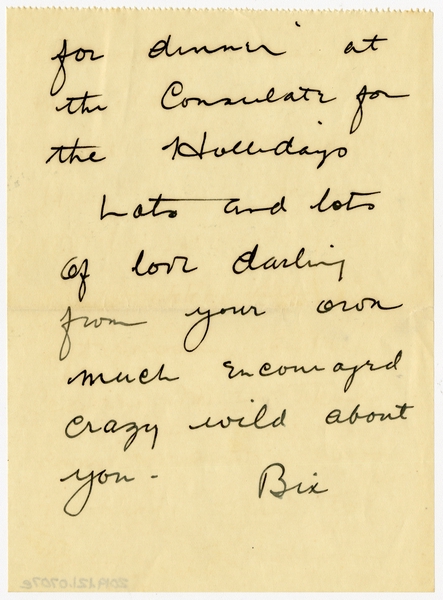 for dinner at
the Consulate for
the Hollidays
Lots and lots
of love darling
from your own
much encouraged
crazy wild about
you - Bix
2019.121.0707e